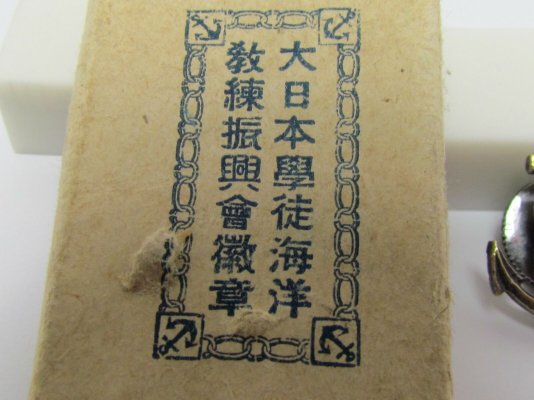 大日本學徒海洋
敎練振興會徽章